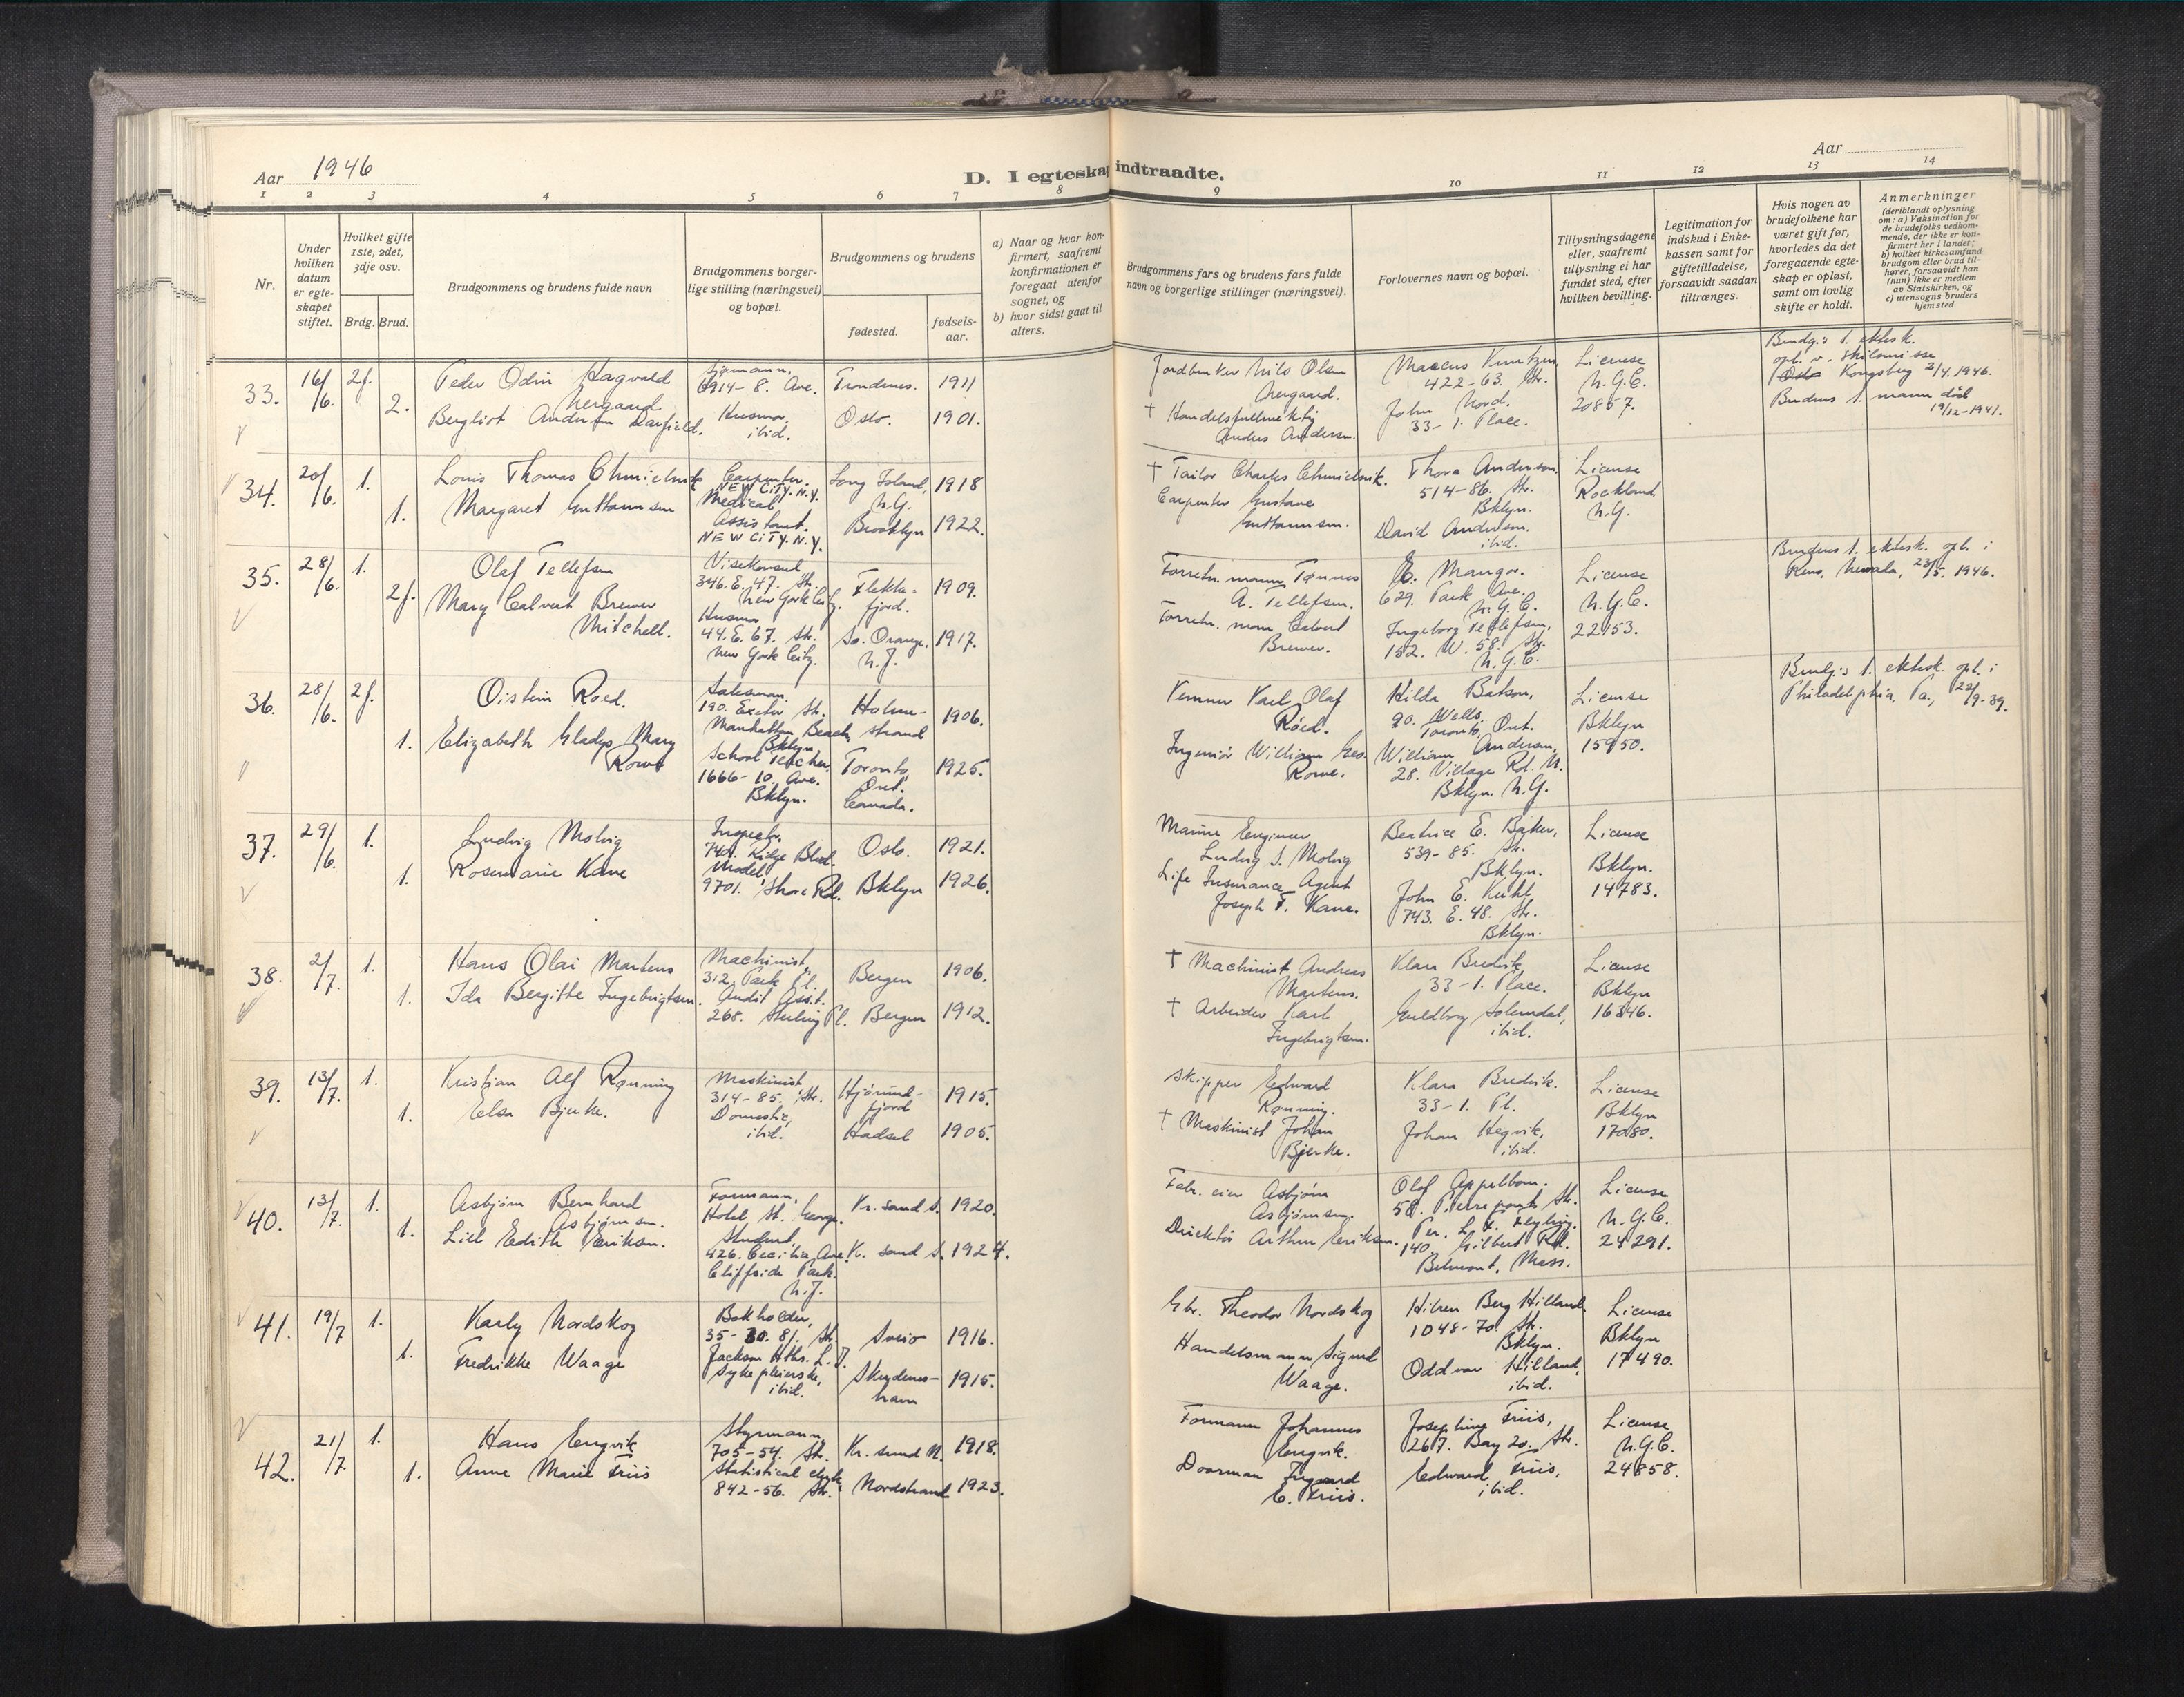 Aar 1946
D. I egteskap indtraadte.
Aar
1 2 3 4 5 6 7 8 9 10 11 12 13 14
Nr.
Under hvilken datum er egteskapet stiftet.
Hvilket gifte 1ste, 2det, 3dje osv.
Brdg. Brud.
Brudgommens og brudens fulde navn
Brudgommens borgerlige stilling (næringsvei) og bopæl.
Brudgommens og brudens
fødested.
fødselsaar.
a) Naar og hvor konfirmert, saafremt konfirmationen er foregaat utenfor sognet, og
b) hvor sidst gaat til alters.
Brudgommens fars og brudens fars fulde navn og borgerlige stillinger (næringsvei).
Forlovernes navn og bopæl.
Tillysningsdagene eller, saafremt tillysning ei har fundet sted, efter hvilken bevilling.
Legitimation for indskud i Enkekassen samt for giftetilladelse, forsaavidt saadan tiltrænges.
Hvis nogen av brudefolkene har været gift før, hvorledes da det foregaaende egteskap er opløst, samt om lovlig skifte er holdt.
Anmerkninger
(deriblandt oplysning om: a) Vaksination for de brudefolks vedkommende, der ikke er konfirmert her i landet; b) hvilket kirkesamfund brudgom eller brud tilhører, forsaavidt han (hun) ikke er medlem av Statskirken, og c) utensogns bruders hjemsted
33. 16/6. 2f.
2.
Peder Odin Hagvald
Aergaard
Bergliot Andersen Danfield.
Sjømann,
6914-8. Ave.
Husmor,
ibid.
Trondenes. 1911
Oslo. 1901.
Jordbruker Nils Olsen
Aergaard.
† Handelsfullmektig
Anders Andersen.
Marcus Knutzen,
422-63. Str.
John Nord.
33-1. Place.
License
N.Y.C.
20867.
Brudg.s 1. ektesk.
opl. v. skilsmisse
Oslo Kongsberg 2/4. 1946.
Brudens 1. mann død
19/12-1941.
34. 20/6. 1.
1.
Louis Thomas Chmielnik
Margaret Guttormsen
Carpenter.
NEW CITY. N.Y.
Medical
Assistant.
NEW CITY. N.Y.
Long Island, N.Y. 1918
Brooklyn 1922.
† Tailor Charles Chmielnik.
Carpenter Gustave
Guttormsen.
Thora Anderson.
514-86. Str.
Bklyn.
David Anderson.
ibid.
License
Rockland
N.Y.
35. 28/6. 1.
2f.
Olaf Tellefsen
Mary Calvert Brewer
Mitchell.
Visekonsul
346. E. 47. Str.
New York City.
Husmor
44. E. 67. Str.
New York City.
Flekkefjord. 1909.
So. Orange. N.J. 1917.
Forretn. mann Tønnes
A. Tellefsen.
Forretn. mann Calvert
Brewer.
E. Mangor.
629. Park Ave.
N.Y.C.
Ingeborg Tellefsen,
152. W. 58. Str.
N.Y.C.
License
N.Y.C.
22153.
Brudens 1. ektesk. opl. i
Reno, Nevada, 23/5. 1946.
36. 28/6. 2f.
1.
Oistein Roed.
Elizabeth Gladys Mary
Rowe
Salesman,
190. Exeter Str.
Manhattan Beach,
Bklyn.
School Teacher
1666-10. Ave.
Bklyn.
Holmestrand 1906.
Toronto, Ont. Canada. 1925.
Kemner Karl Olaf
Röed.
Ingeniør William Geo.
Rowe.
Hilda Batson,
90. Wells,
Toronto, Ont.
William Andersen,
28. Village Rd. N.
Bklyn. N.Y.
License
Bklyn
15950.
Brudg.s 1. ektesk. opl. i
Philadelphia, Pa., 22/9-39.
37. 29/6. 1.
1.
Ludvig Molvig
Rosemarie Kane
Inspector.
7401. Ridge Blvd.
Model
9701. Shore Rd.
Oslo. 1921.
Bklyn 1926.
Marine Engineer
Ludvig S. Molvig
Life Insurance Agent
Joseph F. Kane.
Beatrice E. Baker,
539-85. Str.
Bklyn.
John E. Kuhl,
743. E. 48. Str.
Bklyn.
License
Bklyn.
14783.
38. 2/7. 1.
1.
Hans Olai Martens
Ida Bergitte Ingebrigtsen.
Machinist,
312. Park Pl.
Audit Asst.
268. Sterling Pl.
Bergen 1906.
Bergen 1912.
† Machinist Andreas
Martens.
† Arbeider Karl
Ingebrigtsen.
Klara Bredvik,
33-1. Place.
Guldborg Solemdal,
ibid.
License
Bklyn
16346.
39. 13/7. 1.
1.
Kristian Alf Rønning
Elsa Bjerke.
Maskinist
314-85. Str.
Domestic,
ibid.
Hjørundfjord 1915.
Hadsel 1905.
Skipper Edward
Rønning.
† Maskinist Johan
Bjerke.
Klara Bredvik.
33-1. Pl.
Johan Hegvik,
ibid.
License
Bklyn
17080.
40. 13/7. 1.
1.
Asbjørn Bernhard
Asbjørnsen.
Lill Edith Eriksen.
Formann,
Hotel St. George.
Student,
426. Cecilia Ave.
Cliffside Park.
N.J.
Kr. sand S. 1920.
Kr. sand S. 1924.
Fabr. eier Asbjørn
Asbjørnsen.
Direktør Arthur Eriksen.
Olaf Appelbom.
58. Pierrepont Str.
Per. L. Ø.
140. Gilbert Rd.
Belmont, Mass.
License
N.Y.C.
24291.
41. 19/7 1.
1.
Karly Nordskog
Fredrikke Waage
Bokholder,
35-30. 81. Str.
Jackson Hths. L.I.
Sykepleierske,
ibid.
Sveio 1916.
Skudeneshavn 1915.
Gbr. Theodor Nordskog
Handelsmann Sigurd
Waage.
Hilren Berg Hilland.
1048-70. Str.
Bklyn.
Oddvar Hilland,
ibid.
License
Bklyn
17490.
42. 21/7. 1.
1.
Hans Engvik
Anne Marie Friis
Styrmann,
705-54. Str.
Statistical clerk
842-56. Str.
Kr. sund N. 1918.
Nordstrand 1923.
Formann Johannes
Engvik.
Doorman Ingvard
E. Friis.
Josephine Friis,
267. Bay 20. Str.
Edward Friis,
ibid.
License
N.Y.C.
24858.